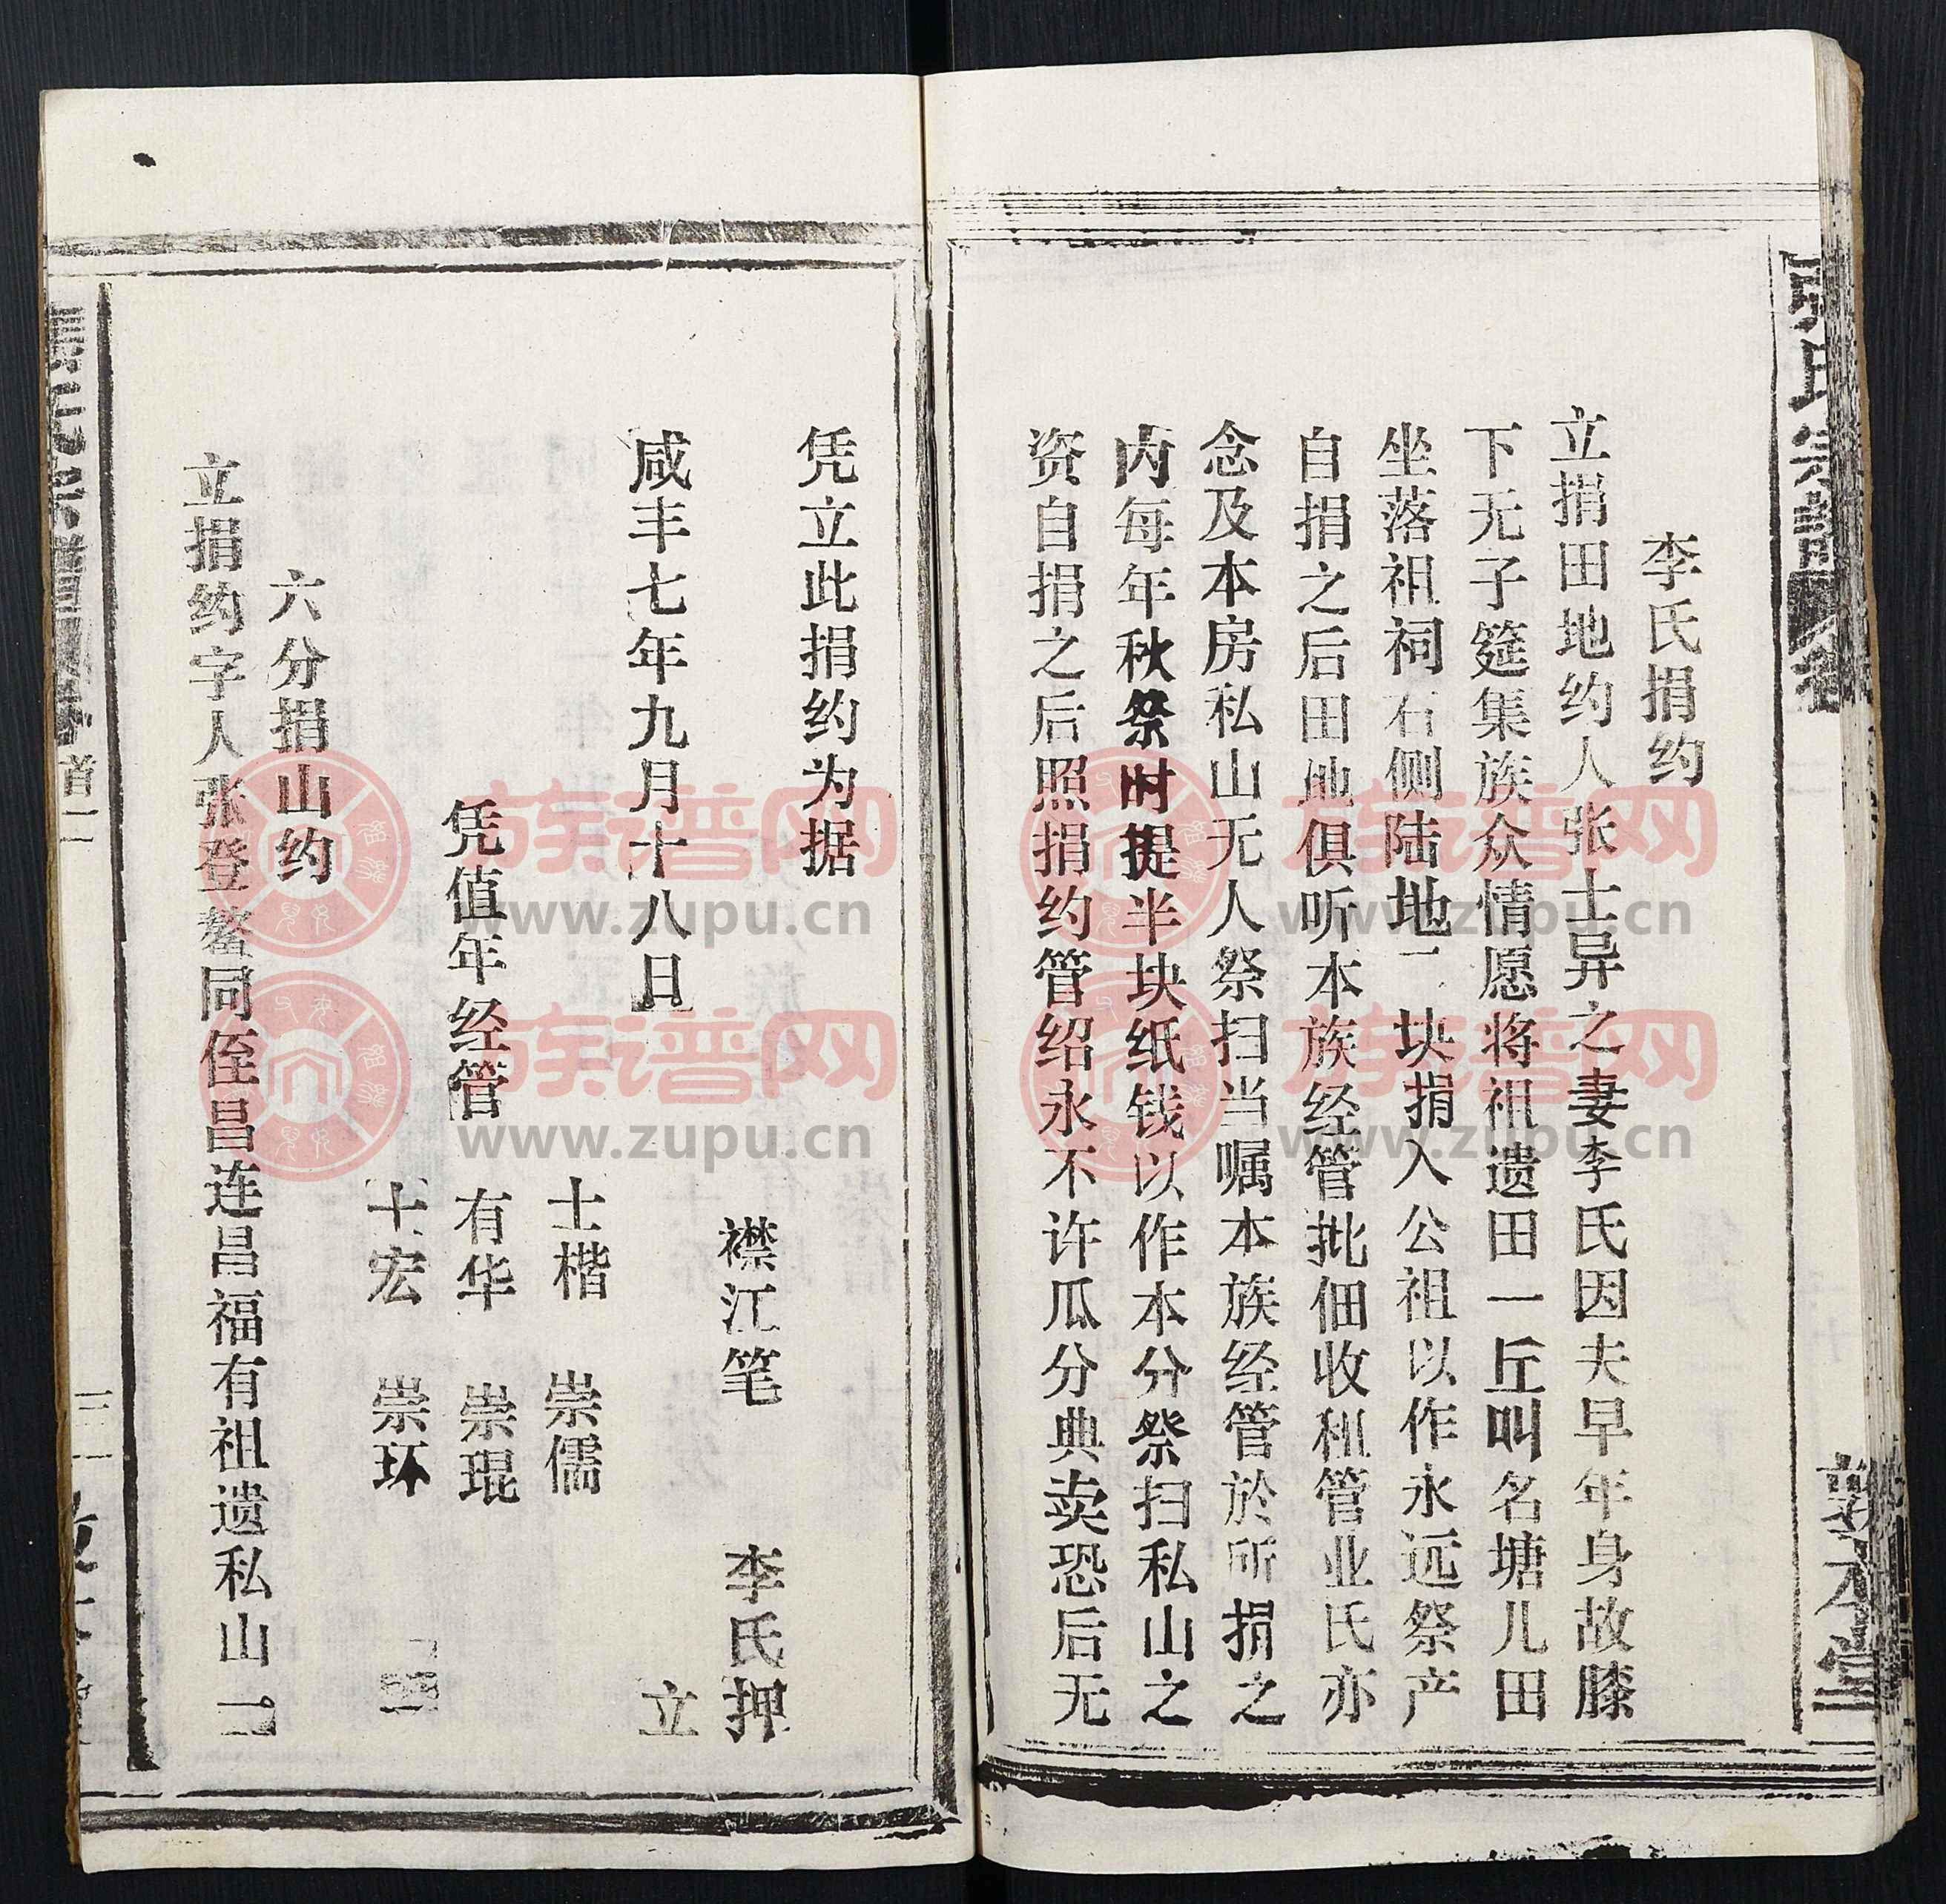 李氏捐约
立捐田地约人张士异之妻李氏因夫早年身故膝
下无子筵集族众情愿将祖遗田一丘叫名塘儿田
坐落祖祠右侧陆地一块捐入公祖以作永远祭产
自捐之后田地俱听本族经管批佃收租管业氏亦
念及本房私山无人祭扫当嘱本族经管於所捐之
内每年秋祭时提半块纸钱以作本分祭扫私山之
资自捐之后照捐约管绍永不许瓜分典卖恐后无
凭立此捐约为据
襟江笔 李氏押
咸丰七年九月十八日 立
士楷 崇儒
凭值年经管 有华 崇琨
士宏 崇环
六分捐山约
立捐约字人张登鳌同侄昌连昌福有祖遗私山一
氏宗譜
敦本堂
氏宗
首二
三一
族谱网
www.zupu.cn
族谱网
www.zupu.cn
族谱网
www.zupu.cn
族谱网
www.zupu.cn